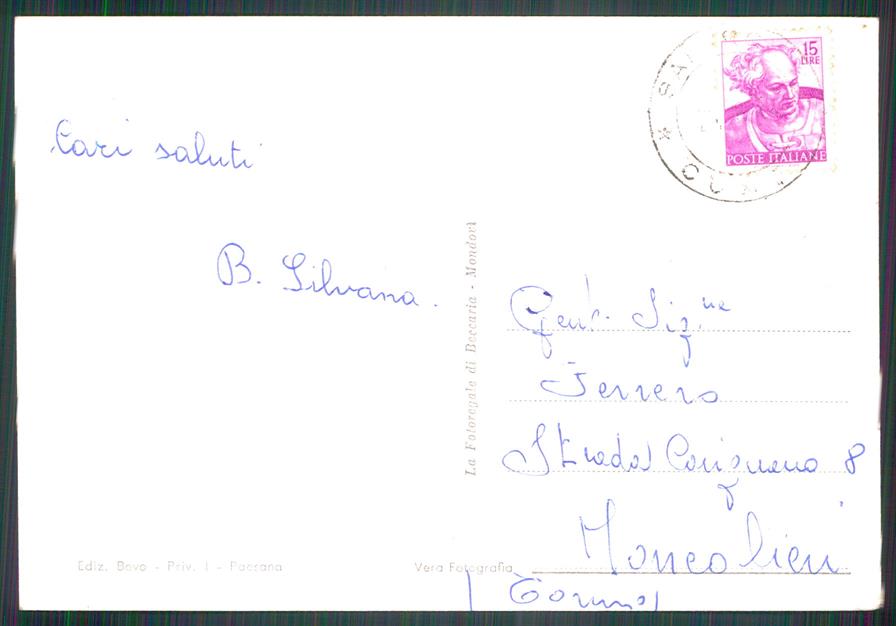 15
LIRE
POSTE ITALIANE
CUN
Cari saluti
B. Silvana.
Gent. Sig.ne
Ferrero
Strada Carignano 8
Moncalieri
(Torino)
La Fotoregale di Beccaria - Mondovì
Ediz. Bovo - Priv. 1 - Paesana
Vera Fotografia